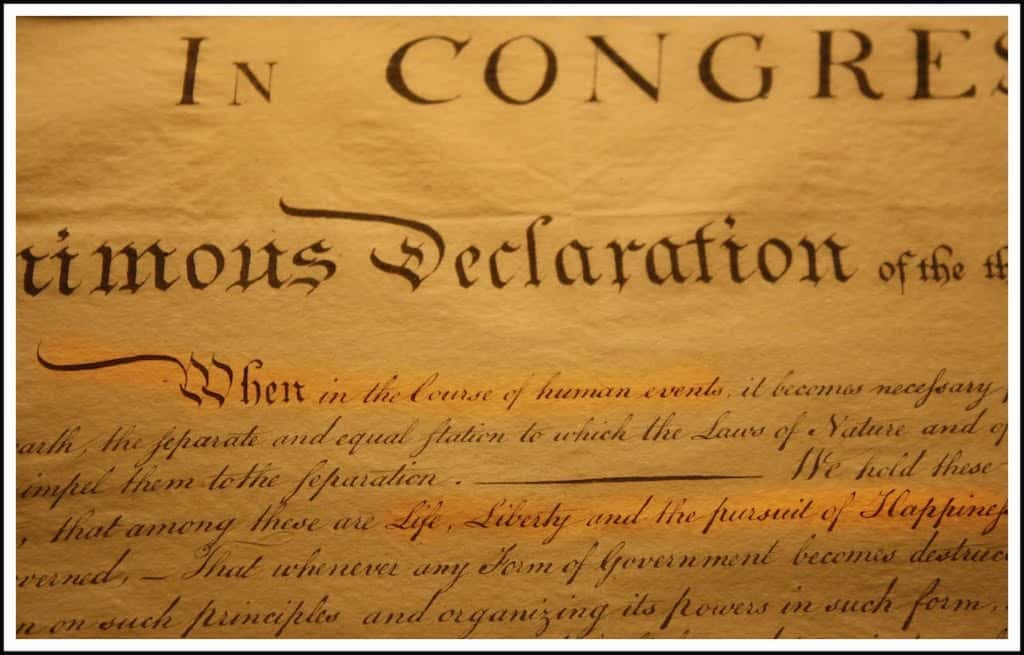 In CONGRES
nimous Declaration of the th
When in the Course of human events, it becomes neceſsary
arth, the ſeparate and equal ſtation to which the Laws of Nature and of
impel them to the ſeparation. ——— We hold these
, that among these are Life, Liberty and the pursuit of Happineſs
verned, — That whenever any Form of Government becomes destruc
n on such principles and organizing its powers in such form,